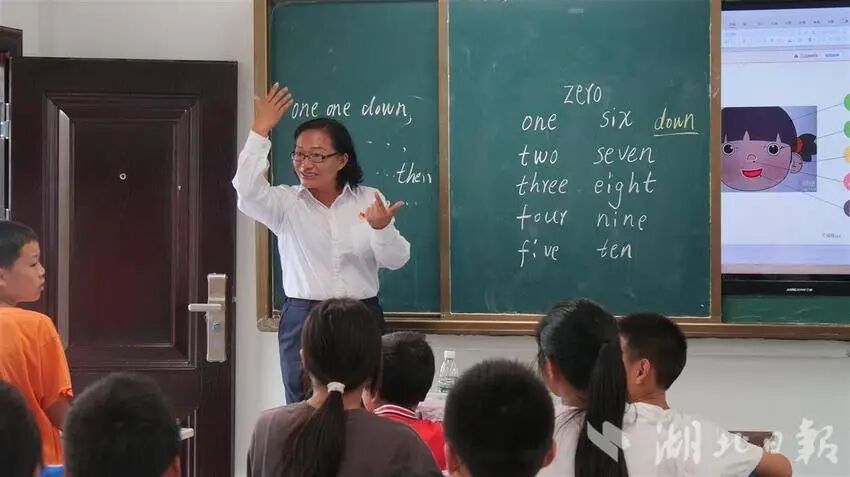 one one down,
..,
.. then
..
zero
one six down
two seven
three eight
four nine
five ten
湖北日報